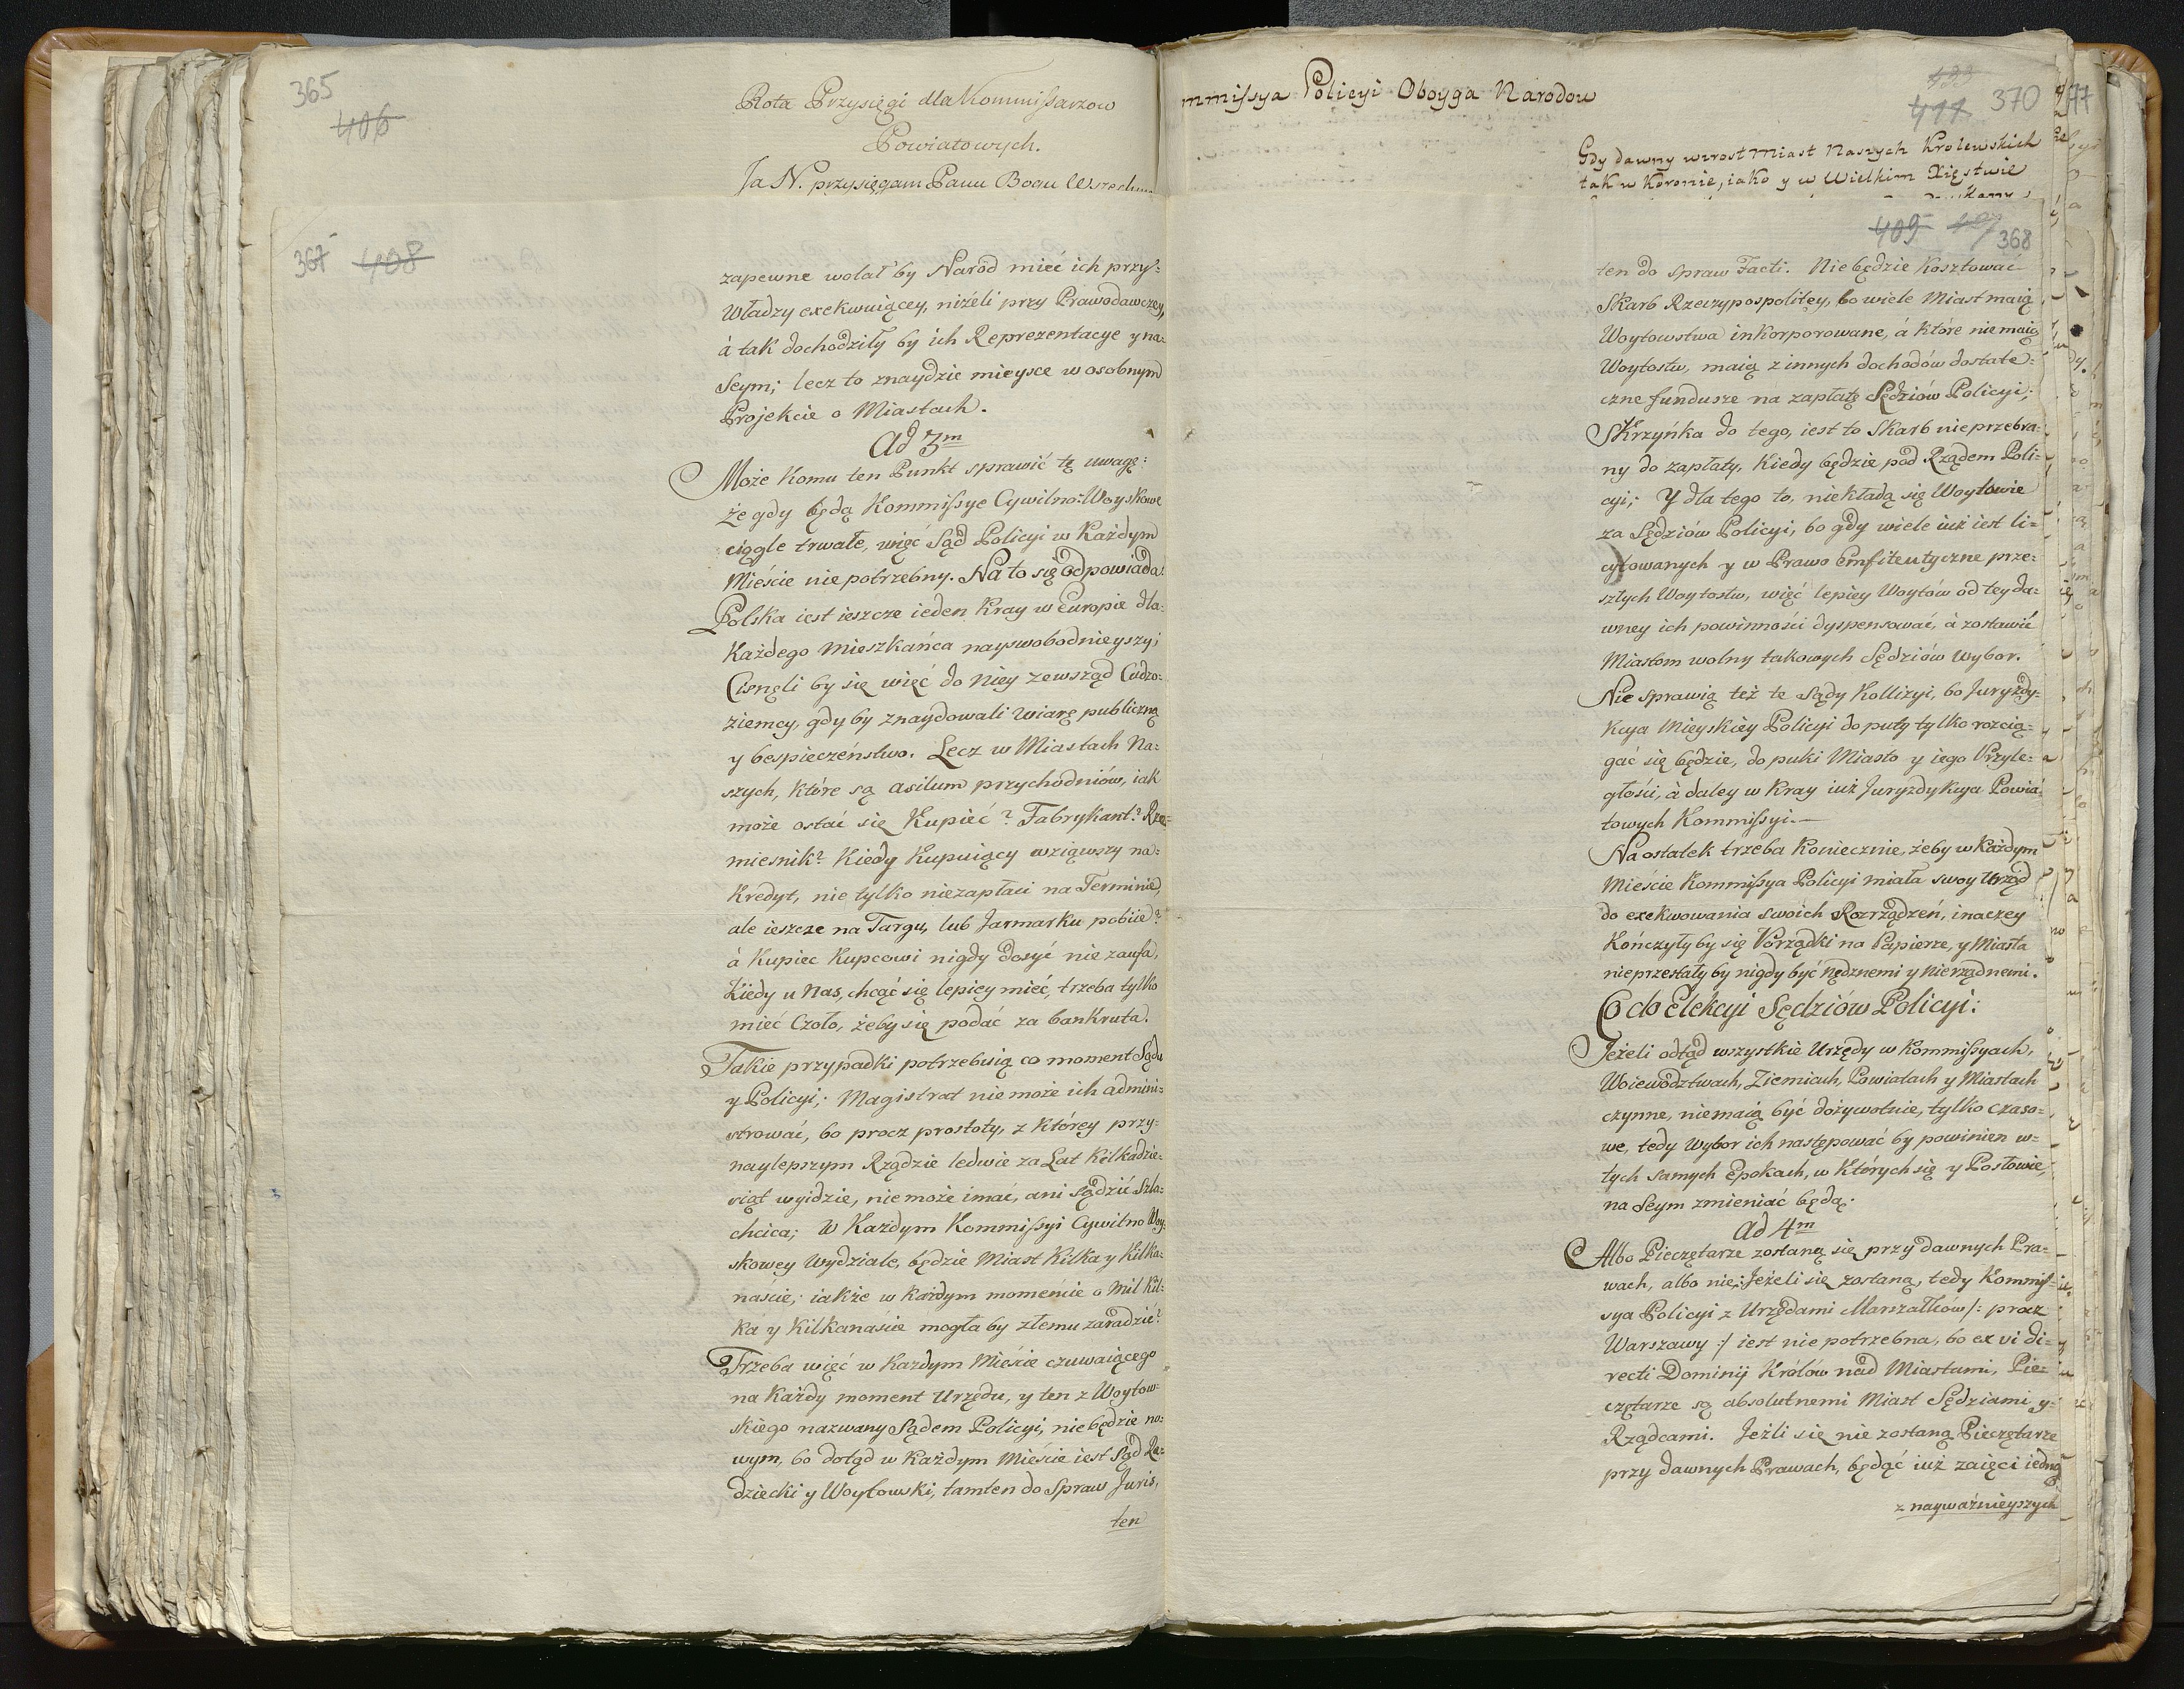 365
406
Rota Przysięgi dla Kommissarzow
Powiatowych.
Ja N. przysięgam Panu Bogu
367 408
zapewne wolał by Naród mieć ich przy=
Władzy exekwuiącey, niżeli przy Prawodawczey,
á tak dochodziły by ich Reprezentacye y na=
Seym; lecz to znaydzie mieysce w osobnym
Projekcie o Miastach.
Ad 3m
Może komu ten Punkt sprawić tę uwagę:
Że gdy będą Kommissye Cywilno=Woyskowe
ciągle trwałe, więć Sąd Policyi w Każdym
Mieście niepotrzebny. Na to się Odpowiada:
Polska iest ieszcze ieden Kray w Europie dla=
Każdego Mieszkańca nayswobodnieyszy;
Cisnęli by się więć do Niey zewsząd Cudzo=
ziemcy, gdy by znaydowali Wiarę publiczną
y bespieczeństwo. Lecz w Miastach Na=
szych, które są asilum przychodniów, iak
może ostać się Kupieć? Fabrykant? Rze=
miesnik? Kiedy Kupuiący wziąwszy na=
Kredyt, nie tylko niezapłaci na Terminie,
ale ieszcze na Targu, lub Jarmarku pobiie?
à Kupiec Kupcowi nigdy dosyć nie zaufa,
Kiedy u Nas, chcąć się lepiey mieć, trzeba tylko
mieć Czoło, żeby się podać za bankruta.
Takie przypadki potrzebuią co moment Sądu
y Policyi; Magistrat nie może ich admini=
strować, bo procz prostoty, z którey przy=
naylepszym Rządzie ledwie za Lat Kilkadzie=
siąt wyidzie, nie może imać, ani sądzić Szla=
chcica; W Każdym Kommissyi Cywilno Woy=
skowey Wydziale, będzie Miast Kilka y Kilka=
naście; iakże w każdym momencie o Mil Kil=
ka y Kilkanaście mogła by złemu zaradzić?
Trzeba więć w Każdym Mieście czuwaiącego
na Każdy moment Urzędu, y ten z Woytow=
skiego nazwany Sądem Policyi, nie będzie no=
wym, bo dotąd w Każdym Mieście iest Sąd Ra=
dziecki y Woytowski, tamten do Spraw Juris,
ten
mmissya Policyi Oboyga Narodow
411 370
Gdy dawny wzrost Miast Naszych Krolewskich
tak w Koronie, iako y w Wielkim Xięstwie
409 368
ten do spraw Facti. Nie będzie Kosztować
Skarb Rzeczypospolitey, bo wiele Miast maią
Woytowstwa inkorporowane, á które nie maią
Woytostw, maią z innych dochodów dostate=
czne fundusze na zapłatę Sędziów Policyi;
Skrzyńka do tego, iest to Skarb nieprzebra=
ny do zapłaty, Kiedy będzie pod Rządem Poli=
cyi; Y dla tego to, niekładą się Woytowie
za Sędziów Policyi, bo gdy wiele iuż iest li=
cytowanych y w Prawo Emfiteutyczne prze=
szłych Woytostw, więć lepiey Woytów od tey da=
wney ich powinności dyspensować, à zostawić
Miastom wolny takowych Sędziów Wybor.
Nie sprawią też te Sądy Kollizyi, bo Juryzdy=
kcya Mieyskiey Policyi do puty tylko rozcią=
gać się będzie, do puki Miasto y iego Przyle=
głości, à daley w Kray iuż Juryzdykcya Powia=
towych Kommissyi.—
Na ostatek trzeba Koniecznie, żeby w Każdym
Mieście Kommissya Policyi miała swoy Urząd
do exekwowania swoich Rozrządzeń, inaczey
Kończyły by się Porządki na Papierze, y Miasta
nie przestały by nigdy być Nędznemi y Nierządnemi.
Co do Elekcyi Sędziów Policyi:
Jeżeli odtąd wszystkie Urzędy w Kommissyach,
Woiewodztwach, Ziemiach, Powiatach y Miastach
czynne, niemaią być dożywotnie, tylko czaso=
we, tedy Wybor ich następować by powinien w=
tych samych Epokach, w których się y Posłowie
na Seym zmieniać będą.
Ad 4m
Albo Pieczętarze zostaną się przy dawnych Pra=
wach, albo nie; Jeżeli się zostaną, tedy Kommis=
sya Policyi z Urzędami Marszałków /: procz
Warszawy :/ iest nie potrzebna, bo ex vi di=
recti Dominij Królów nad Miastami, Pie=
czętarze są absolutnemi Miast Sędziami y=
Rządcami. Jeżli się nie zostaną Pieczętarze
przy dawnych Prawach, będąć iuż zaięci iedną
z nayważnieyszych